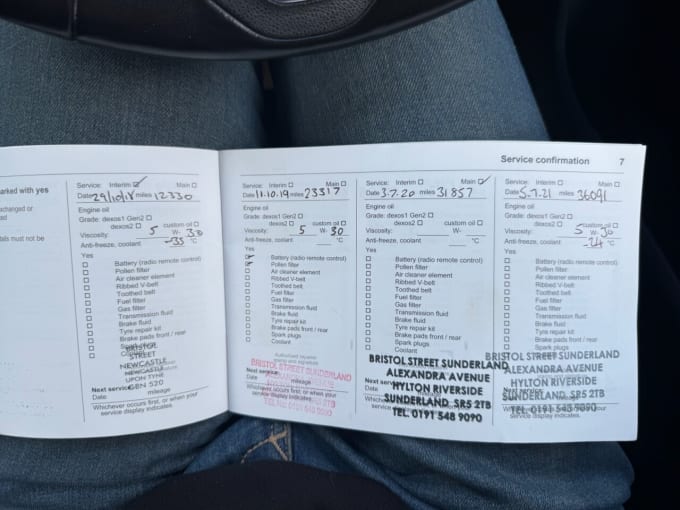 arked with yes
xchanged or
ed
ials must not be
Service: Interim Main
Date 29/10/18 miles 12330
Engine oil
Grade: dexos1 Gen2
dexos2 custom oil
Viscosity: 5 W- 30
Anti-freeze, coolant -35 °C
Yes
Battery (radio remote control)
Pollen filter
Air cleaner element
Ribbed V-belt
Toothed belt
Fuel filter
Gas filter
Transmission fluid
Brake fluid
Tyre repair kit
Brake pads front / rear
Spark plugs
BRISTOL
STREET
NEWCASTLE
UPON TYNE
Next service
Date mileage
Whichever occurs first, or when your
service display indicates.
Service confirmation 7
Service: Interim Main
Date 11.10.19 miles 23317
Engine oil
Grade: dexos1 Gen2
dexos2 custom oil
Viscosity: 5 W- 30
Anti-freeze, coolant °C
Yes
Battery (radio remote control)
Pollen filter
Air cleaner element
Ribbed V-belt
Toothed belt
Fuel filter
Gas filter
Transmission fluid
Brake fluid
Tyre repair kit
Brake pads front / rear
Spark plugs
Coolant
BRISTOL STREET SUNDERLAND
Next service
Date mileage
Whichever occurs first, or when your
service display indicates.
Service: Interim Main
Date 3.7.20 miles 31857
Engine oil
Grade: dexos1 Gen2
dexos2 custom oil
Viscosity: W-
Anti-freeze, coolant °C
Yes
Battery (radio remote control)
Pollen filter
Air cleaner element
Ribbed V-belt
Toothed belt
Fuel filter
Gas filter
Transmission fluid
Brake fluid
Tyre repair kit
Brake pads front / rear
Spark plugs
Coolant
BRISTOL STREET SUNDERLAND
ALEXANDRA AVENUE
HYLTON RIVERSIDE
SUNDERLAND. SR5 2TB
TEL. 0191 548 9090
Service: Interim Main
Date 5.7.21 miles 36091
Engine oil
Grade: dexos1 Gen2
dexos2 custom oil
Viscosity: 5 W- 30
Anti-freeze, coolant -24 °C
Yes
Battery (radio remote control)
Pollen filter
Air cleaner element
Ribbed V-belt
Toothed belt
Fuel filter
Gas filter
Transmission fluid
Brake fluid
Tyre repair kit
Brake pads front / rear
Spark plugs
BRISTOL STREET SUNDERLAND
ALEXANDRA AVENUE
HYLTON RIVERSIDE
SUNDERLAND. SR5 2TB
TEL. 0191 548 9090
service display indicates.